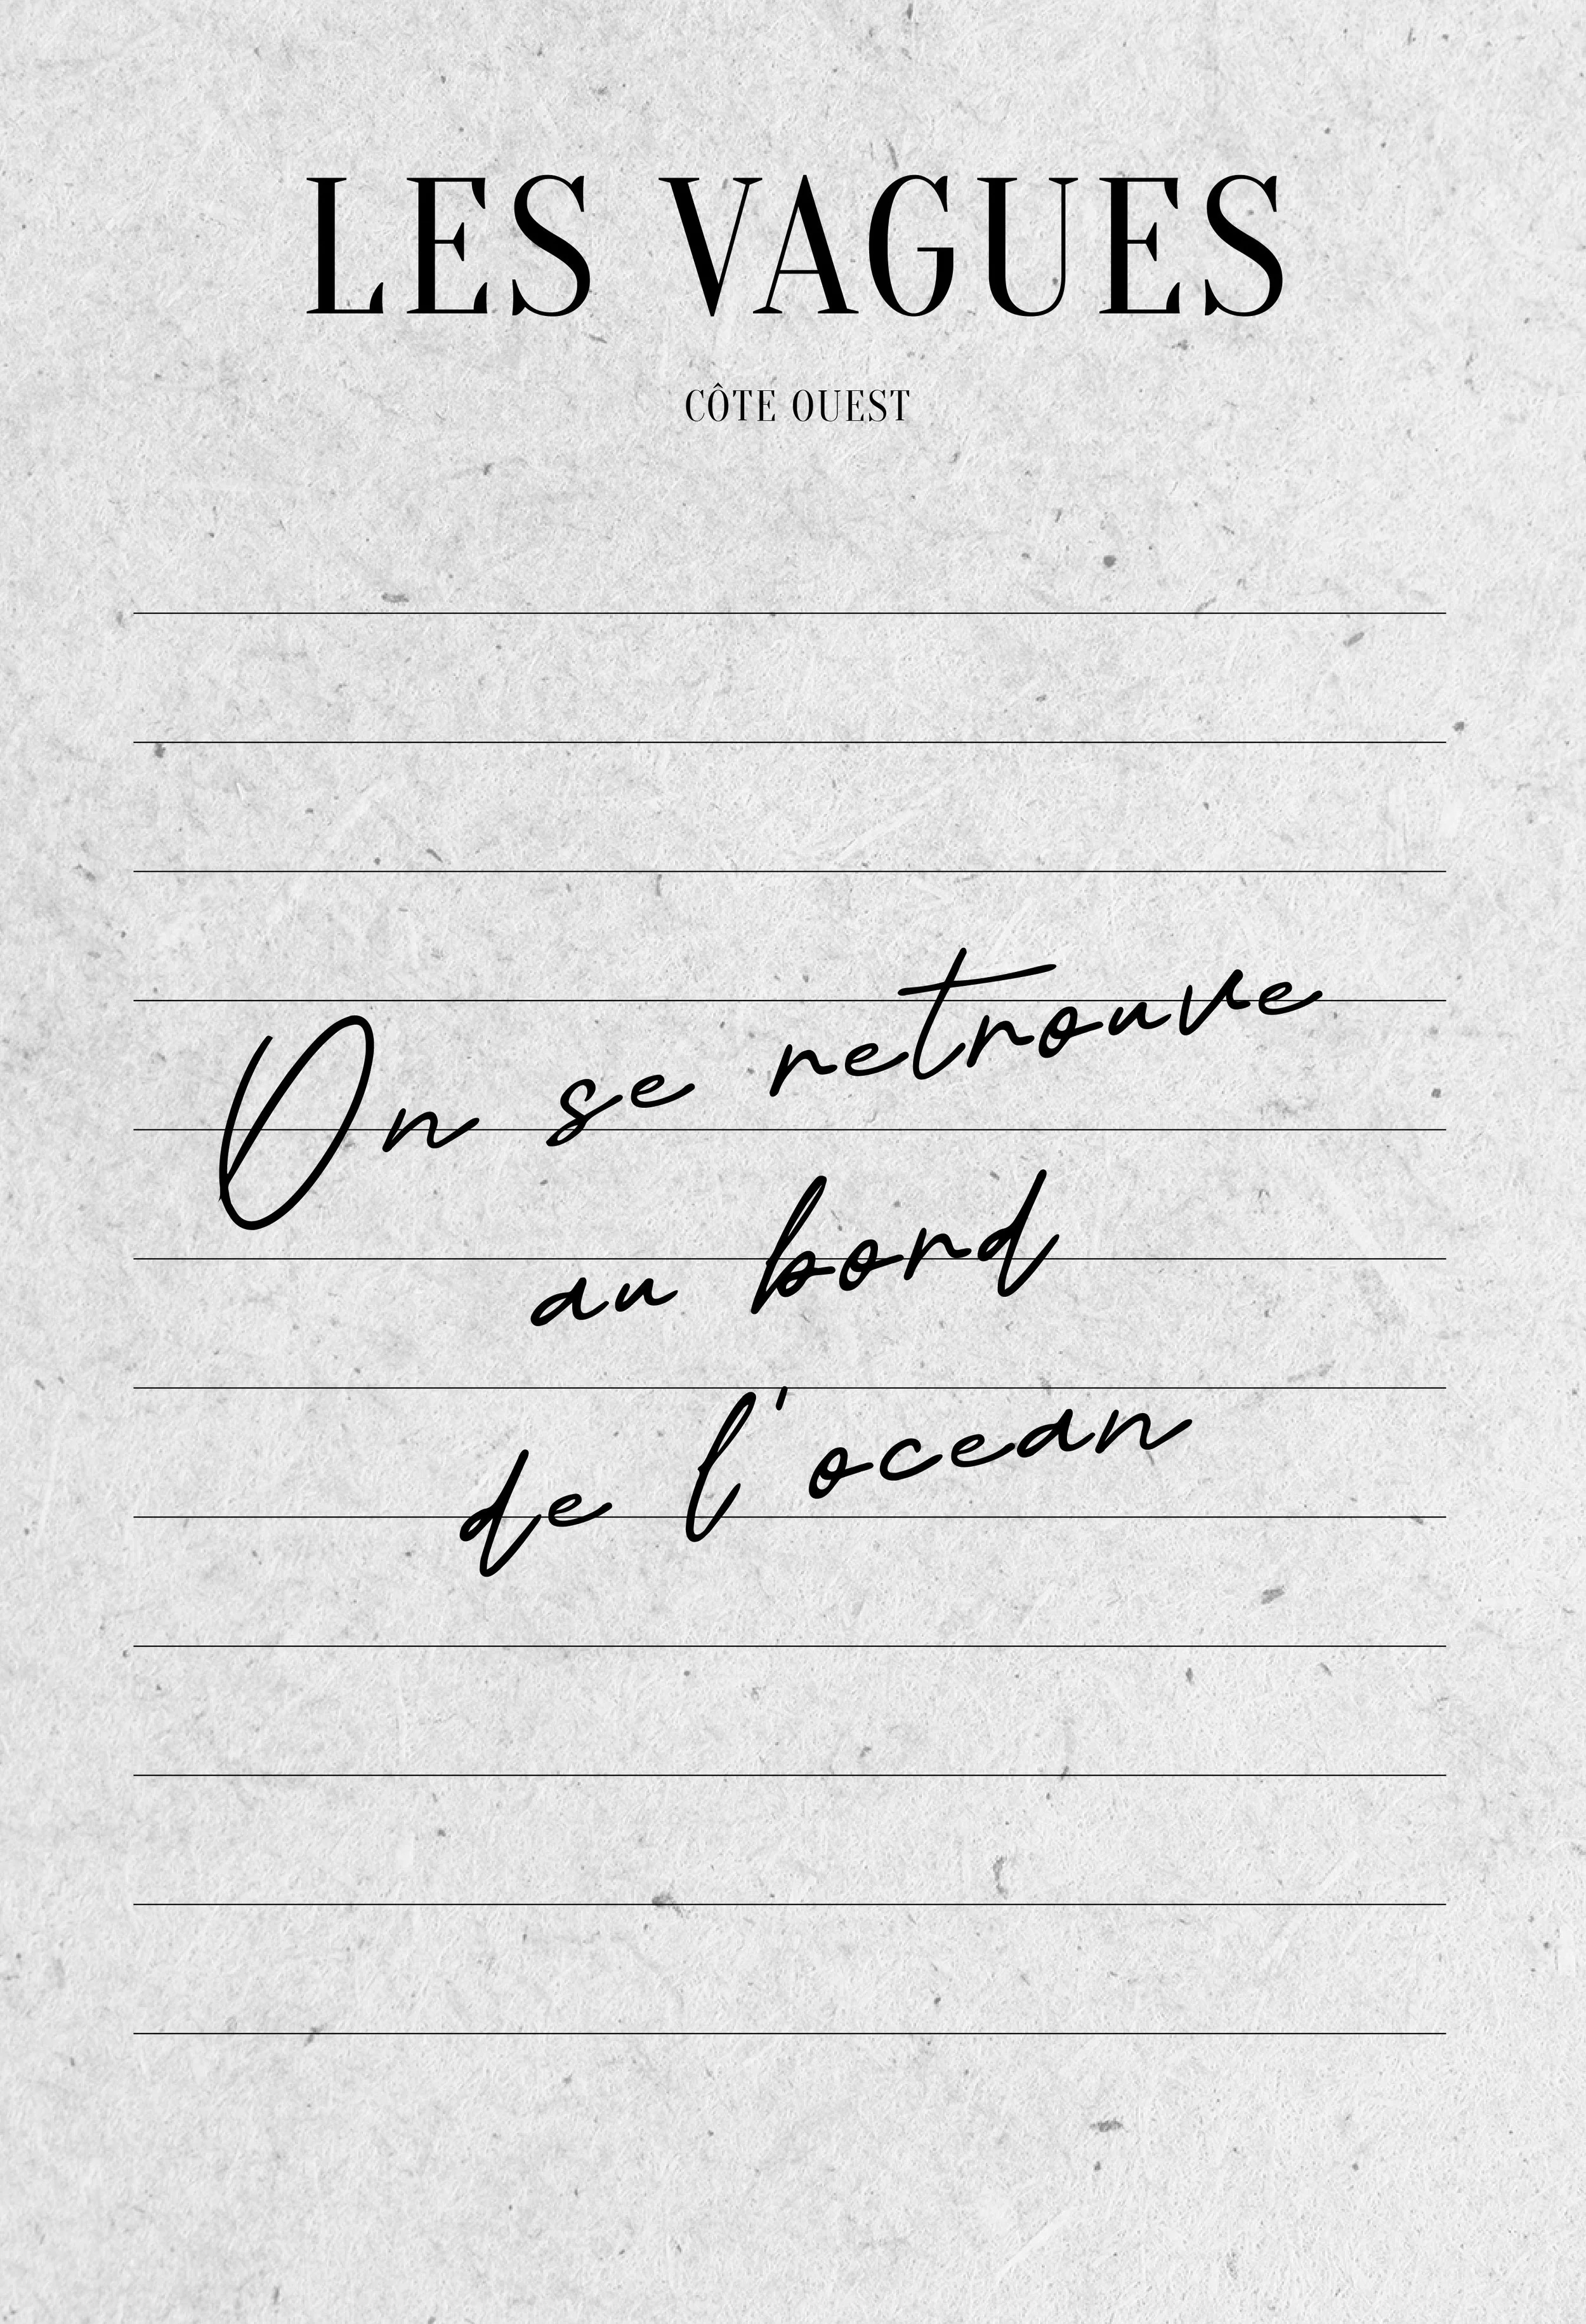 LES VAGUES
CÔTE OUEST
On se retrouve
au bord
de l'ocean